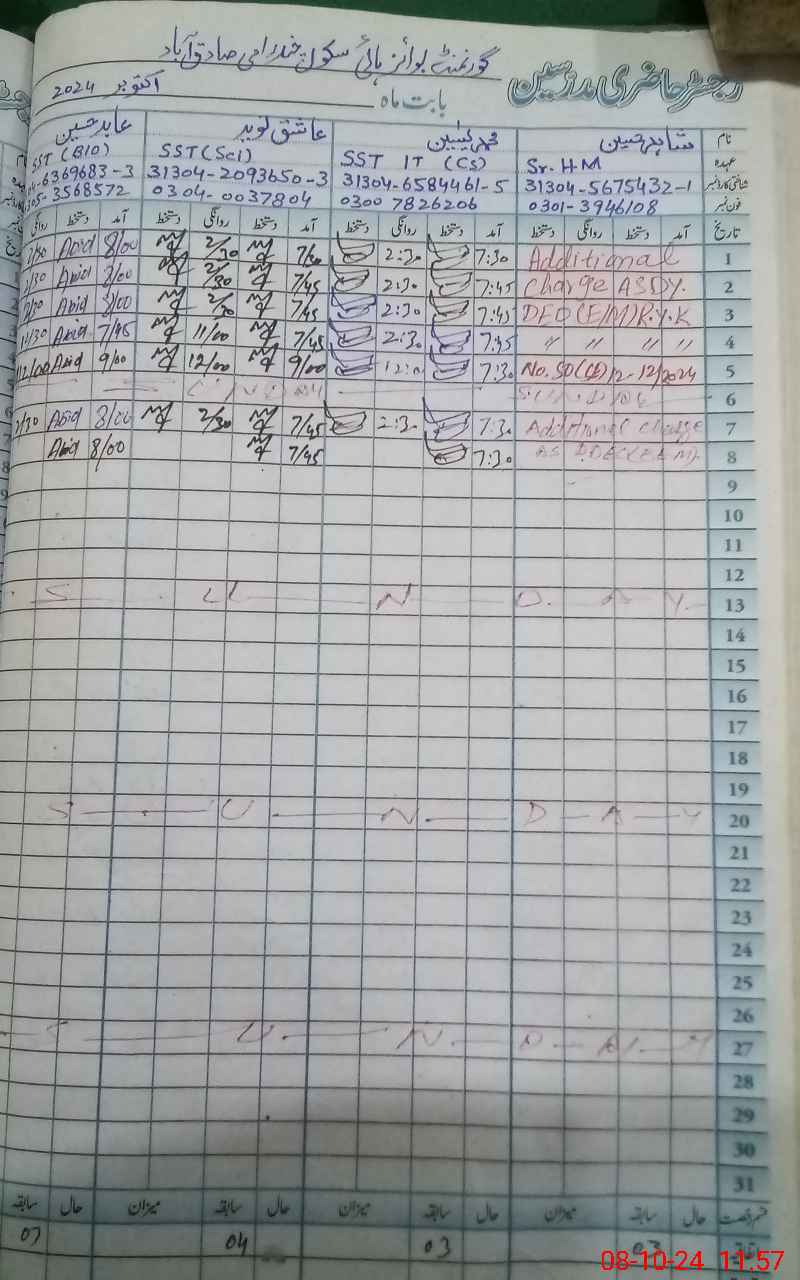 گورنمنٹ بوائز ہائی سکول بندرامی صادق آباد
رجسٹر حاضری مدرسین
بابت ماہ اکتوبر 2024
نام شاہد حسین محمد یٰسین عاشق نوید عابد حسین
عہدہ Sr. H.M SST IT (CS) SST (Sci) SST (BIO)
شناختی کارڈ نمبر 31304-5675432-1 31304-6584461-5 31304-2093650-3 6369683-3
فون نمبر 0301-3946108 0300 7826206 0304-0037804 3568572
تاریخ آمد دستخط روانگی دستخط آمد دستخط روانگی دستخط آمد دستخط روانگی دستخط آمد دستخط روانگی
1 Additional 7:30 2:30 7/30 2/30 8/00 Abid 2/30
2 Charge ASDY. 7:45 2:30 7/45 2/30 8/00 Abid 2/30
3 DEO (E/M) R.Y.K 7:45 2:30 7/45 2/30 8/00 Abid 2/30
4 " " " " 7:45 2:30 7/45 11/00 7/45 Abid 11/30
5 No. SO(SE) 12-12/2024 7:30 12:0 9/00 12/00 9/00 Abid 12/00
6
7 Additional Charge 7:30 2:30 7/45 2/30 8/00 Abid 2/30
8 7:30 7/45 8/00 Abid
9
10
11
12
13 S U N D A Y
14
15
16
17
18
19
20 S U N D A Y
21
22
23
24
25
26
27 S U N D A Y
28
29
30
31
حال سابقہ میزان حال سابقہ میزان حال سابقہ میزان حال سابقہ
03 03 04 07
08-10-24 11:57